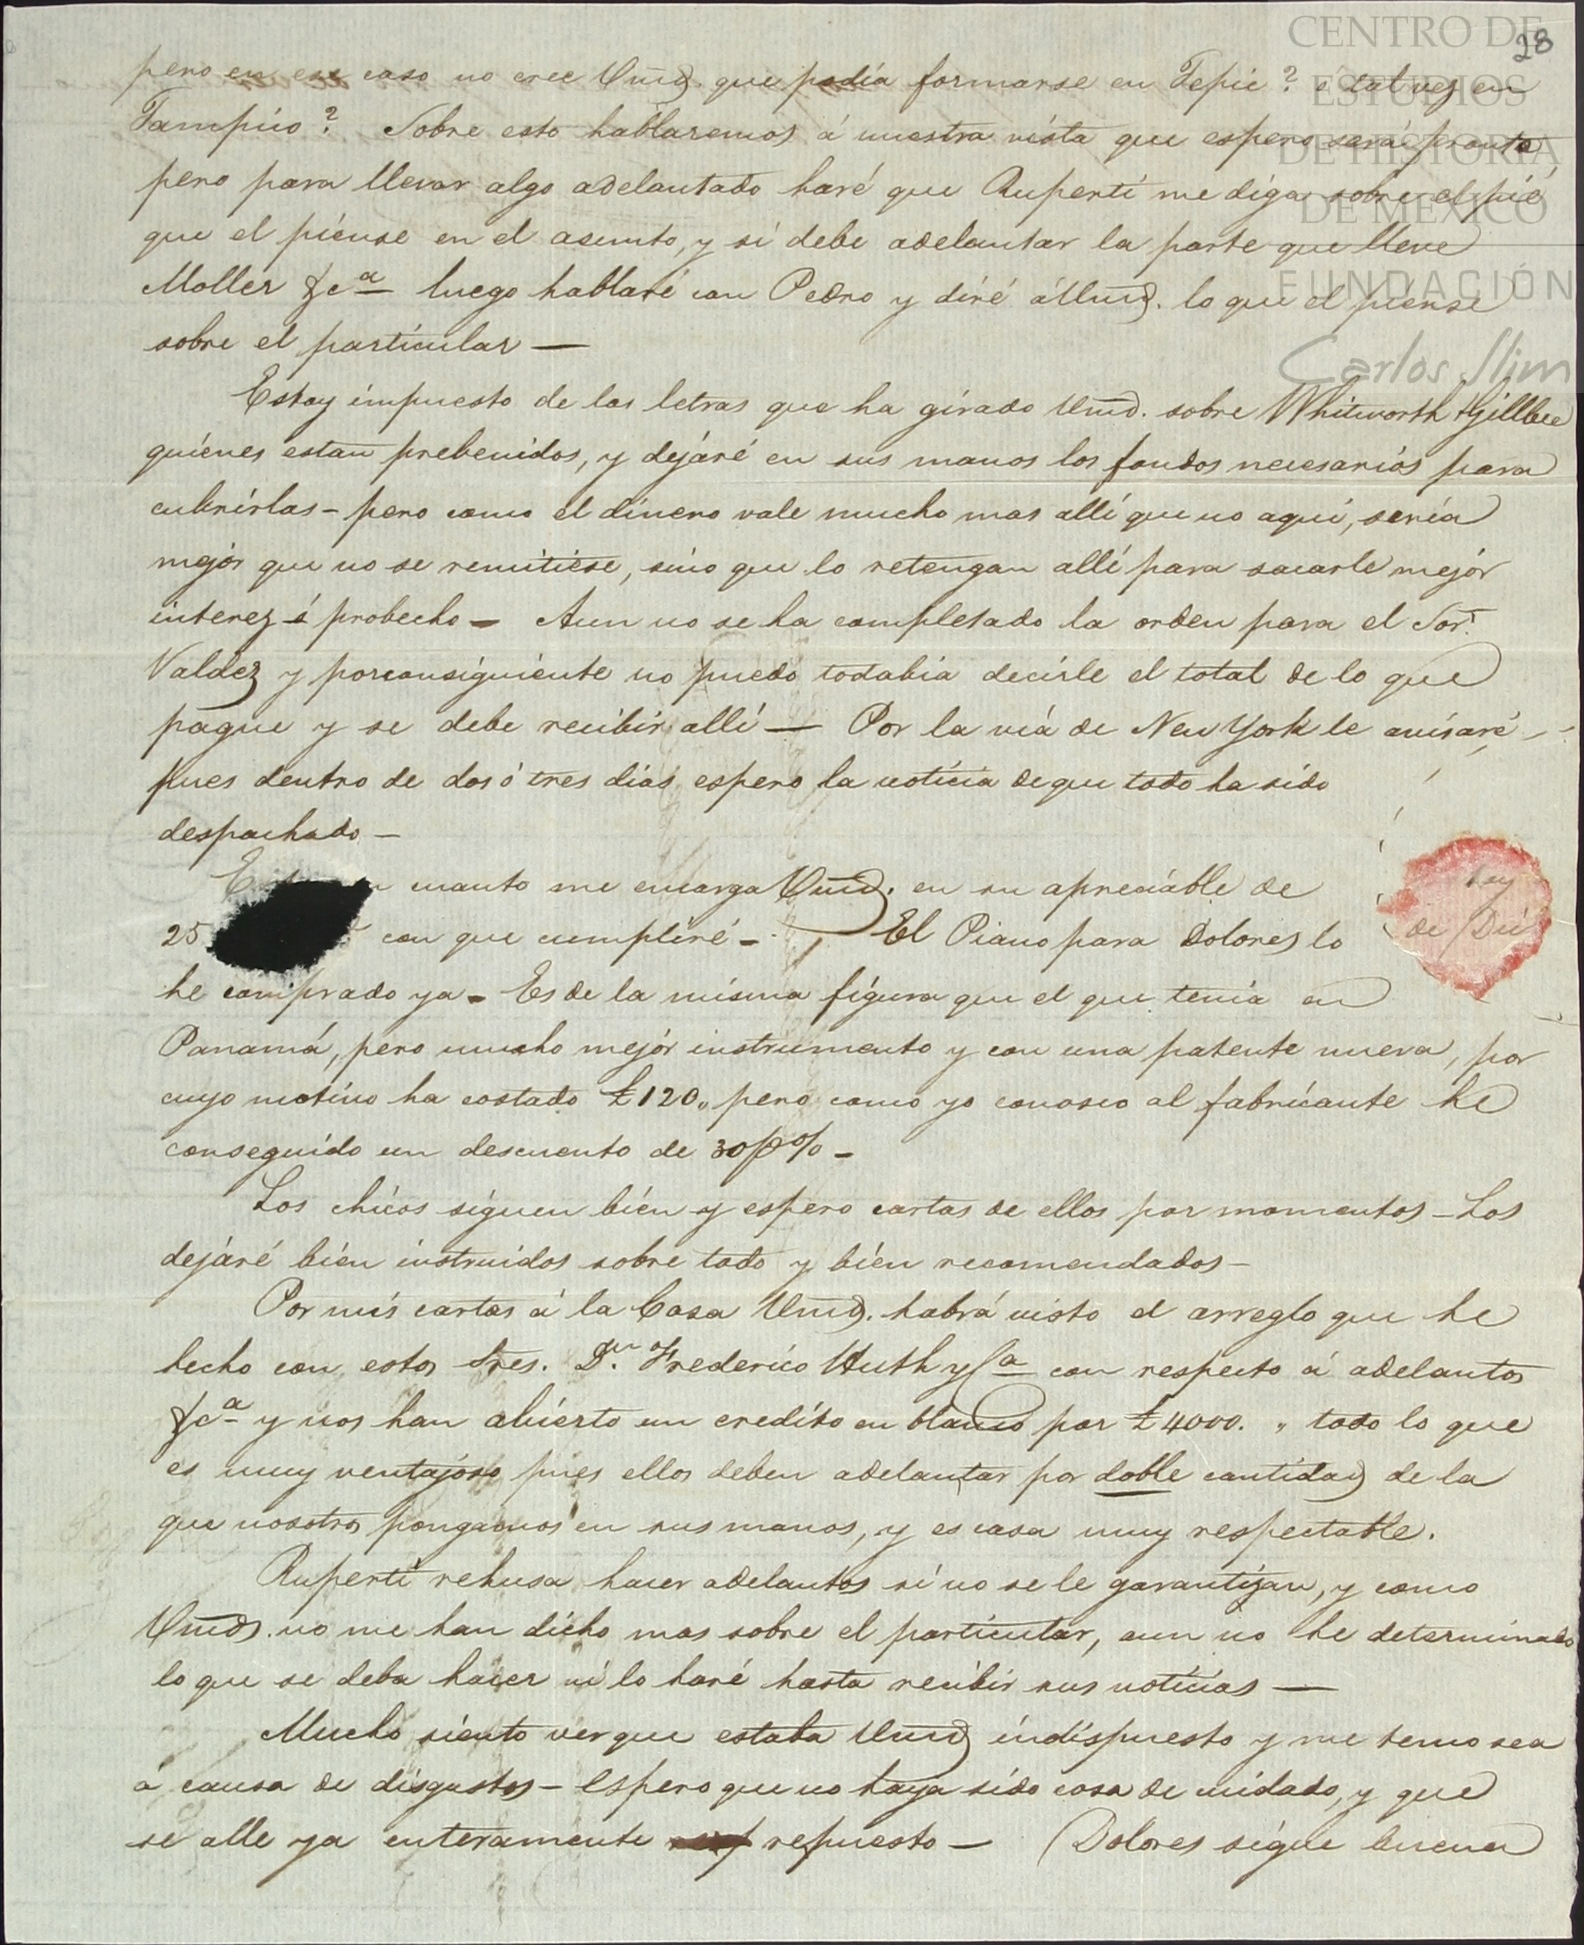 CENTRO DE
ESTUDIOS
DE HISTORIA
DE MEXICO
FUNDACIÓN
Carlos Slim
28
pero en ese caso no cree Vmd. que podía formarse en Tepic? é tal vez en
Tampico? Sobre esto hablaremos á nuestra vista que espero será pronto,
pero para llevar algo adelantado haré que Ruperti me diga sobre el pié
que el piense en el asunto, y si debe adelantar la parte que lleve
Moller &ca luego hablaré con Pedro y diré á Vmd. lo que el piense
sobre el particular —
Estoy impuesto de las letras que ha girado Vmd. sobre Whitworth & Gillbee
quienes estan prebenidos, y dejaré en sus manos los fondos necesarios para
cubrirlas - pero como el dinero vale mucho mas allí que no aqui, sería
mejór que no se remitiése, sino que lo retengan allí para sacarle mejór
interez é probecho — Aun no se ha completado la orden para el Sor.
Valdez y porconsiguiente no puedo todabia decirle el total de lo que
pague y se debe recibir allí — Por la viá de New York le avisaré
pues dentro de dos ó tres dias espero la noticia de que todo ha sido
despachado —
cuanto me encarga Vmd. en su apreciáble de
25 con que cumpliré — El Piano para Dolores lo
he comprado ya — Es de la misma figura que el que tenia en
Panamá, pero mucho mejór instrumento y con una patente nueva, por
cuyo motivo ha costado £120,, pero como yo conosco al fabricante he
conseguido un descuento de 30 p% —
Los chicos siguen bién y espero cartas de ellos por momentos — Los
dejaré bién instruidos sobre todo y bién recomendados —
Por mis cartas á la Casa Vmd. habrá visto el arreglo que he
hecho con estos Sres. Dn. Frederico Huth y Ca con respecto á adelantos
&ca y nos han abierto un credito en blanco por £4000. ,, todo lo que
es muy ventajoso pues ellos deben adelantar por doble cantidad de la
que nosotros pongamos en sus manos, y es casa muy respectable.
Ruperti rehusa hacer adelantos si no se le garantizan, y como
Vmds. no me han dicho mas sobre el particular, aun no he determinado
lo que se deba hacer ni lo haré hasta recibir sus noticias —
Mucho siento ver que estaba Vmd indispuesto y me temo sea
á causa de disgustos — Espero que no haya sido cosa de cuidado, y que
se alle ya enteramente repuesto — Dolores sigue buena